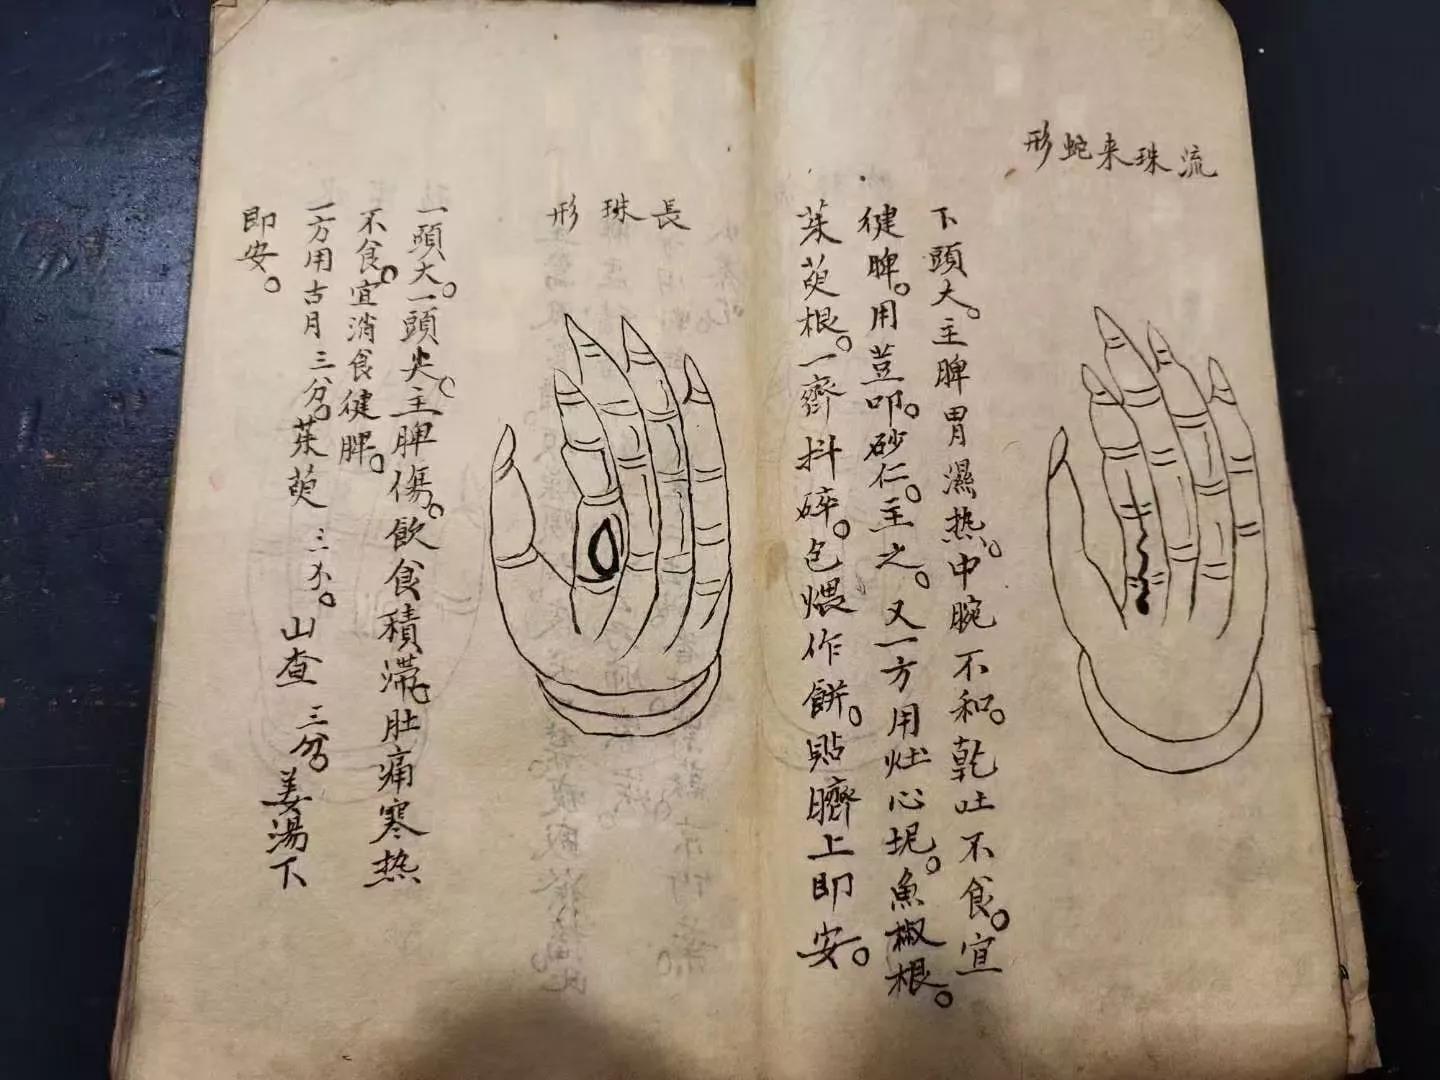 流珠来蛇形
下頭大。主脾胃濕热。中腕不和。乾吐不食。宜
健脾。用荳叩。砂仁。主之。又一方用灶心坭。魚椒根。
茱萸根。一齊抖碎。包煨作餅。貼臍上即安。
長珠形
一頭大。一頭尖。主脾傷。飲食積滯。肚痛寒热
不食。宜消食健脾。
一方用古月三分。茱萸三分。山查三分。姜湯下
即安。